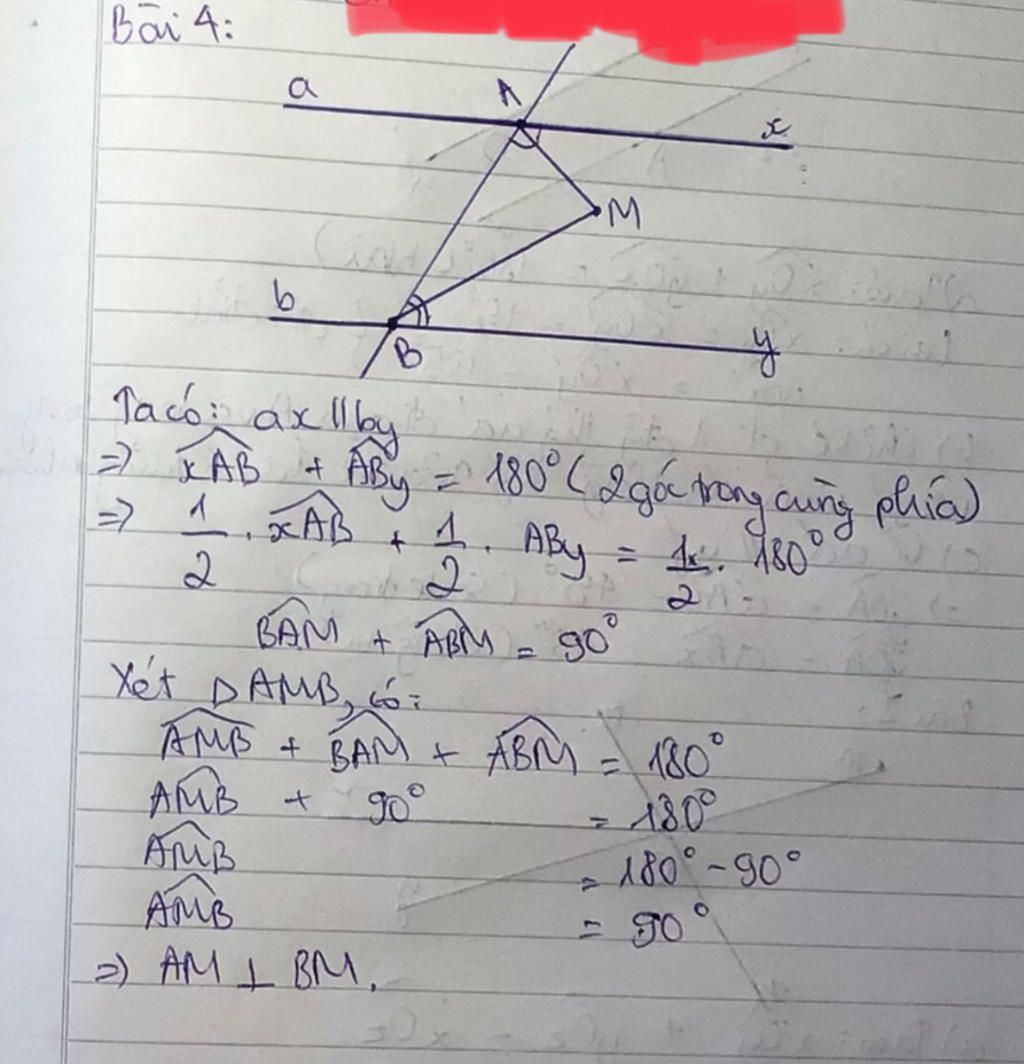 Bài 4:
a A x
M
b B y
Ta có: ax // by
=> xAB + ABy = 180° (2 góc trong cùng phía)
=> 1/2 . xAB + 1/2 . ABy = 1/2 . 180°
BAM + ABM = 90°
Xét △AMB, có:
AMB + BAM + ABM = 180°
AMB + 90° = 180°
AMB = 180° - 90°
AMB = 90°
=> AM ⊥ BM.